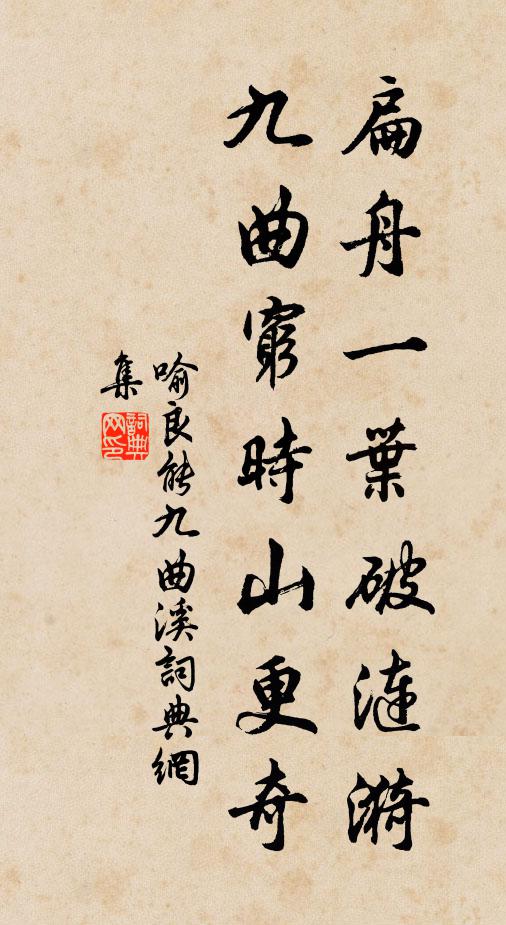 扁舟一葉破漣漪
九曲窮時山更奇
喻良能九曲溪詞典網
集
詞典网印